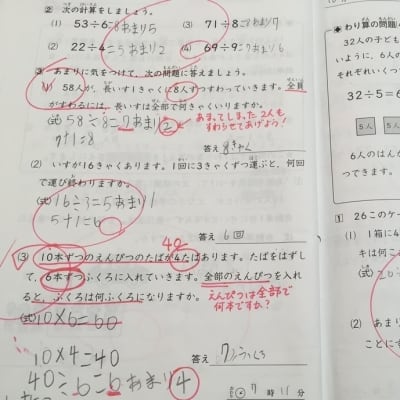 ② 次の計算をしましょう。
(1) 53÷6=8あまり5 (3) 71÷8=8あまり7
(2) 22÷4=5あまり2 (4) 69÷9=7あまり6
③ あまりに気をつけて、次の問題に答えましょう。
(1) 58人が、長いす1きゃくに8人ずつすわっていきます。全員
がすわるには、長いすは全部で何きゃくいりますか。
(式) 58÷8=7あまり2
あまってしまった2人も
すわらせてあげよう!
7+1=8
答え 8きゃく
(2) いすが16きゃくあります。1回に3きゃくずつ運ぶと、何回
で運び終わりますか。
(式) 16÷3=5あまり1
5+1=6
答え 6回
40
(3) 10本ずつのえんぴつのたばが4たばあります。たばをはずし
て、6本ずつふくろに入れていきます。全部のえんぴつを入れ
ると、ふくろは何ふくろになりますか。
えんぴつは全部で
何本ですか?
(式) 10×6=60
10×4=40
答え 7ふくろ
40÷6=6あまり4
7時11分
わり算の
32人の子ども
いように、6人の
それぞれいくつ
32÷5=6
5人 5人
6人のはんが
つできます。
① 26このケー
(1) 1箱に4
キは何こ
(式)
(2) あまり
ことにす